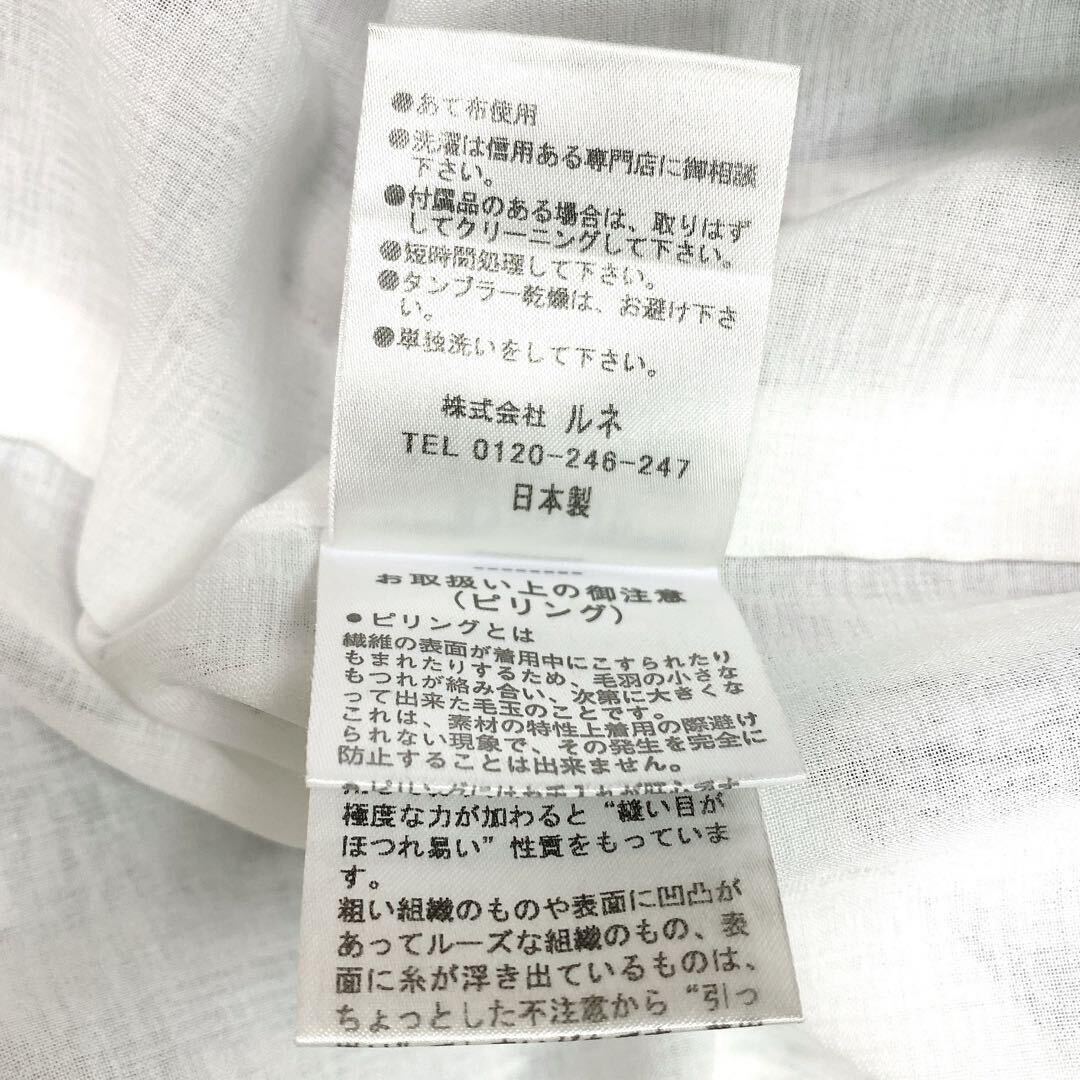 ●あて布使用
●洗濯は信用ある専門店に御相談
下さい。
●付属品のある場合は、取りはず
してクリーニングして下さい。
●短時間処理して下さい。
●タンブラー乾燥は、お避け下さ
い。
●単独洗いをして下さい。
株式会社 ルネ
TEL 0120-246-247
日本製
お取扱い上の御注意
（ピリング）
●ピリングとは
繊維の表面が着用中にこすられたり
もまれたりするため、毛羽の小さな
もつれが絡み合い、次第に大きくな
って出来た毛玉のことです。
これは、素材の特性上着用の際避け
られない現象で、その発生を完全に
防止することは出来ません。
極度な力が加わると“縫い目が
ほつれ易い”性質をもっていま
す。
粗い組織のものや表面に凹凸が
あってルーズな組織のもの、表
面に糸が浮き出ているものは、
ちょっとした不注意から“引っ